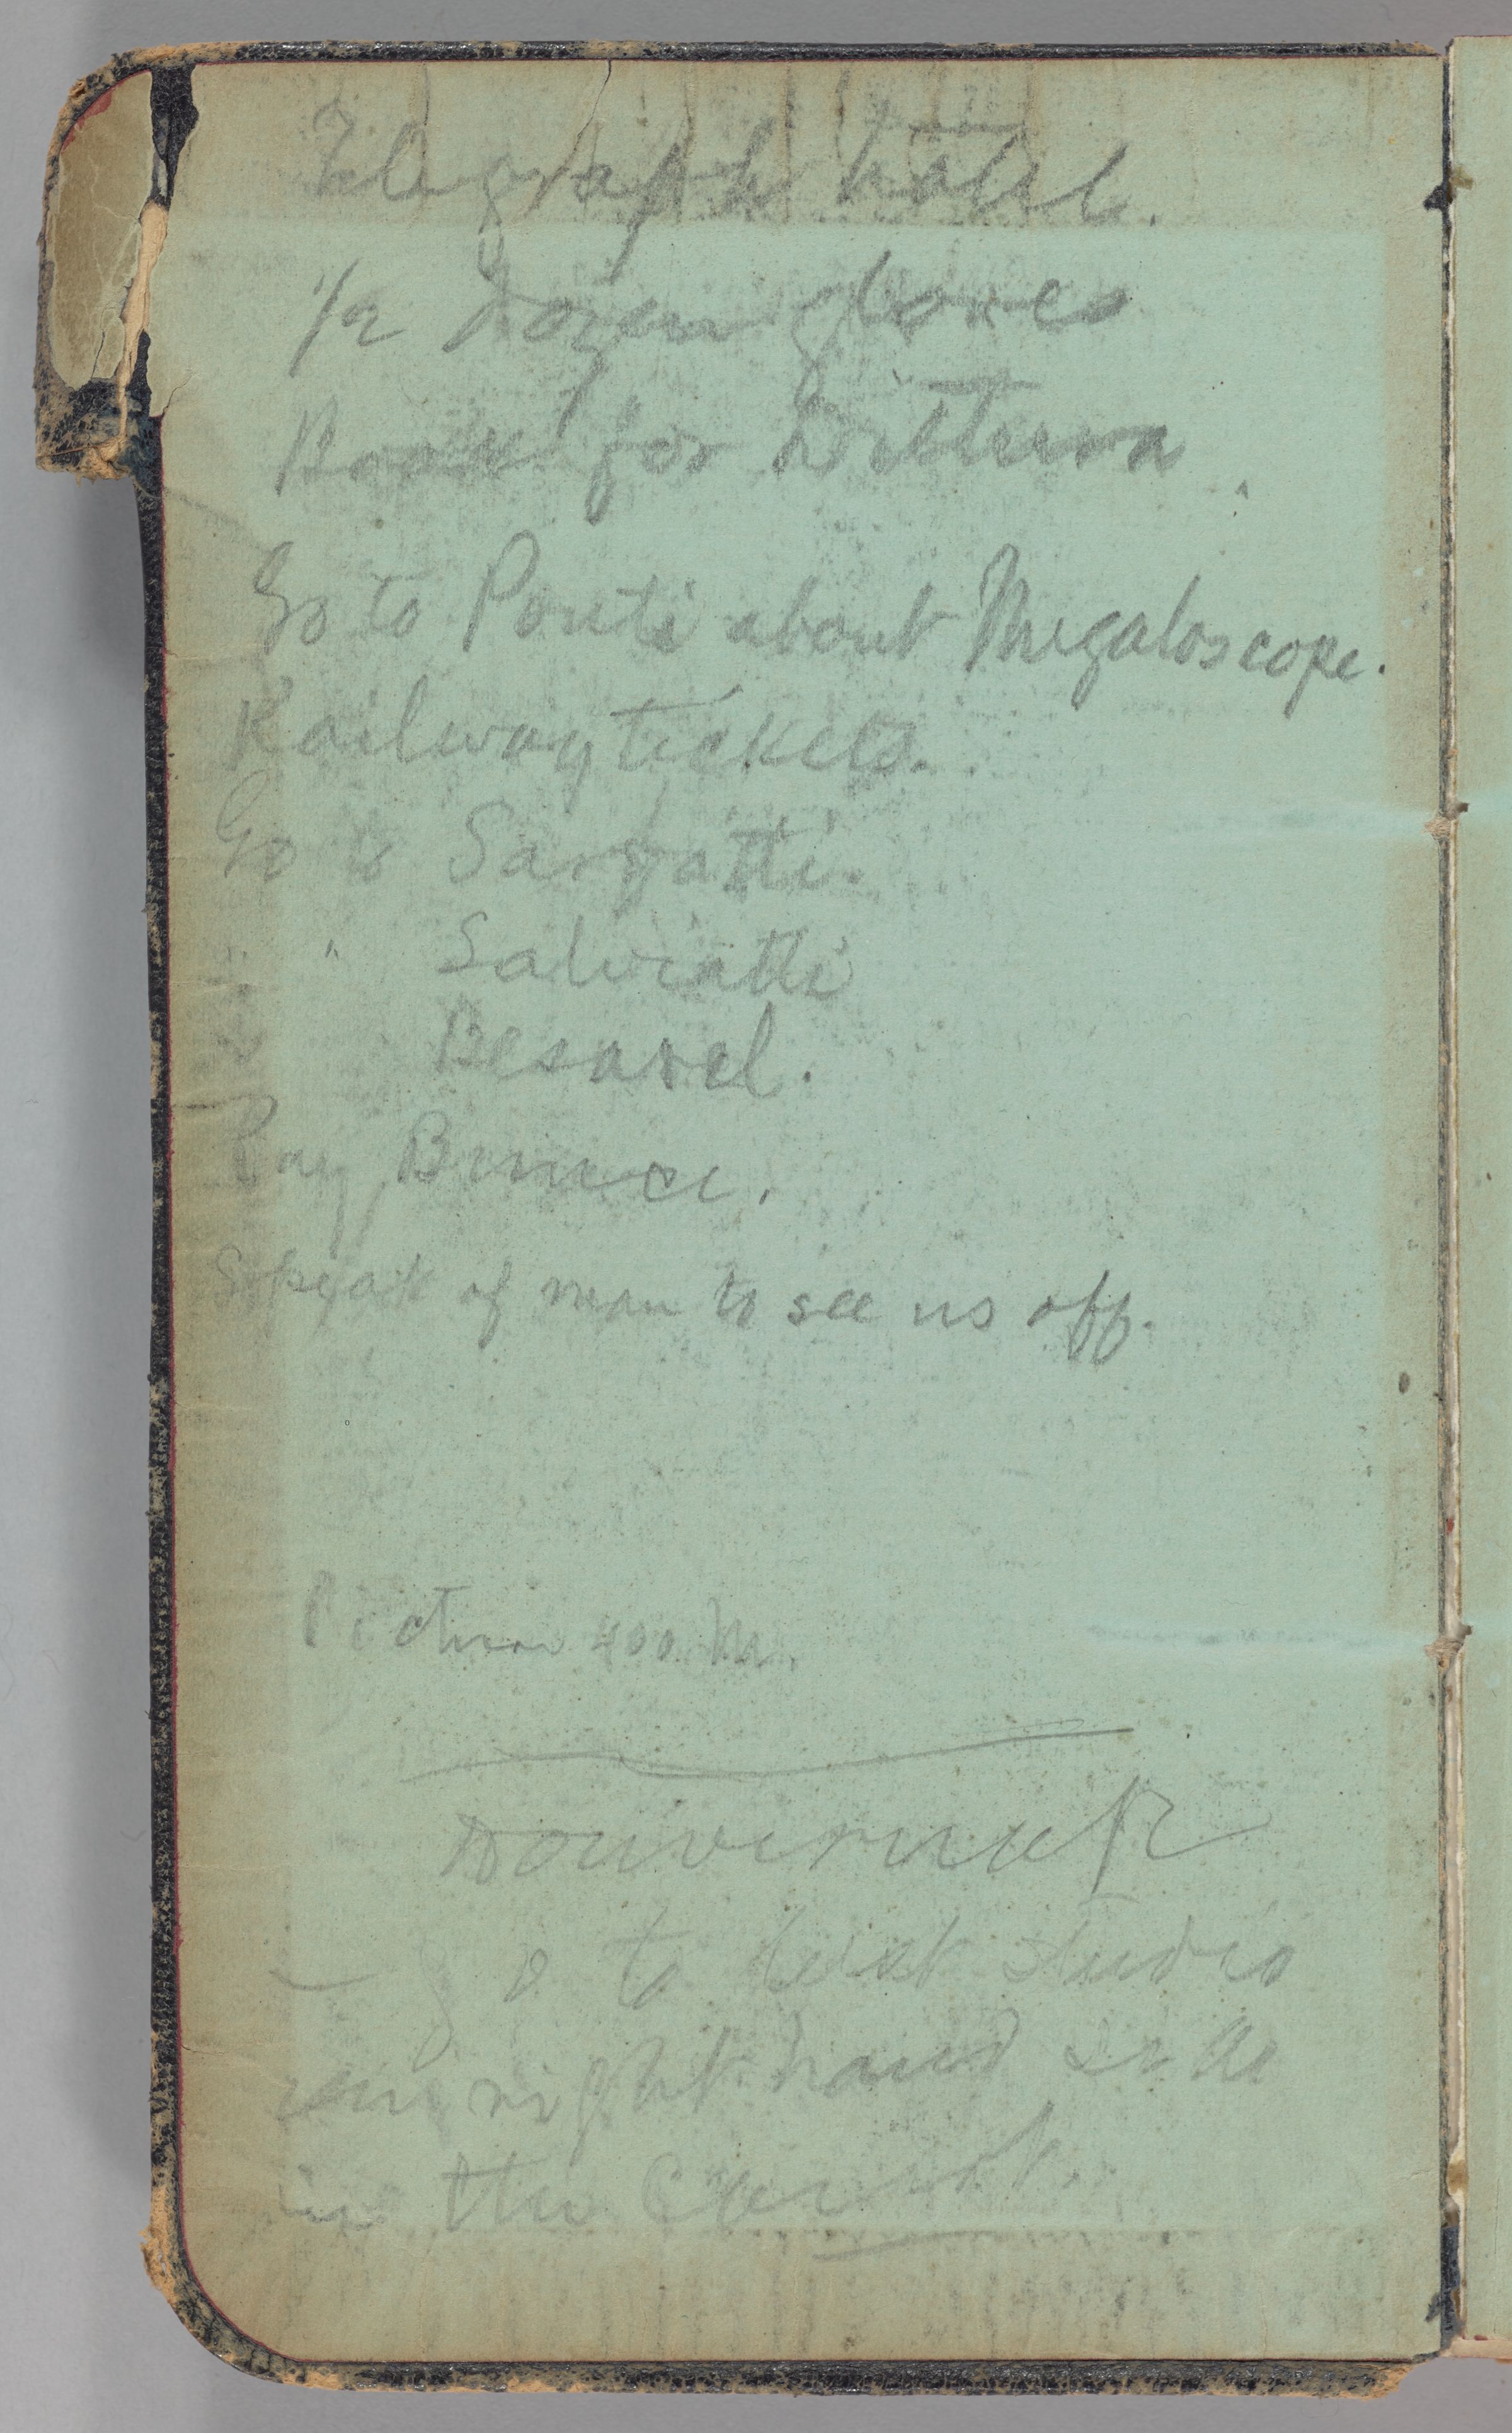 Telegraph hotel.
1/2 dozen gloves
Book for Dittura
Go to Ponti about Megaloscope.
Railway tickets.
Go to Sarfatti.
" Salviatti
Besarel.
Pay
Speak of man to see us off.
Picture 400
go to desk studio
right hand side
in the Court.